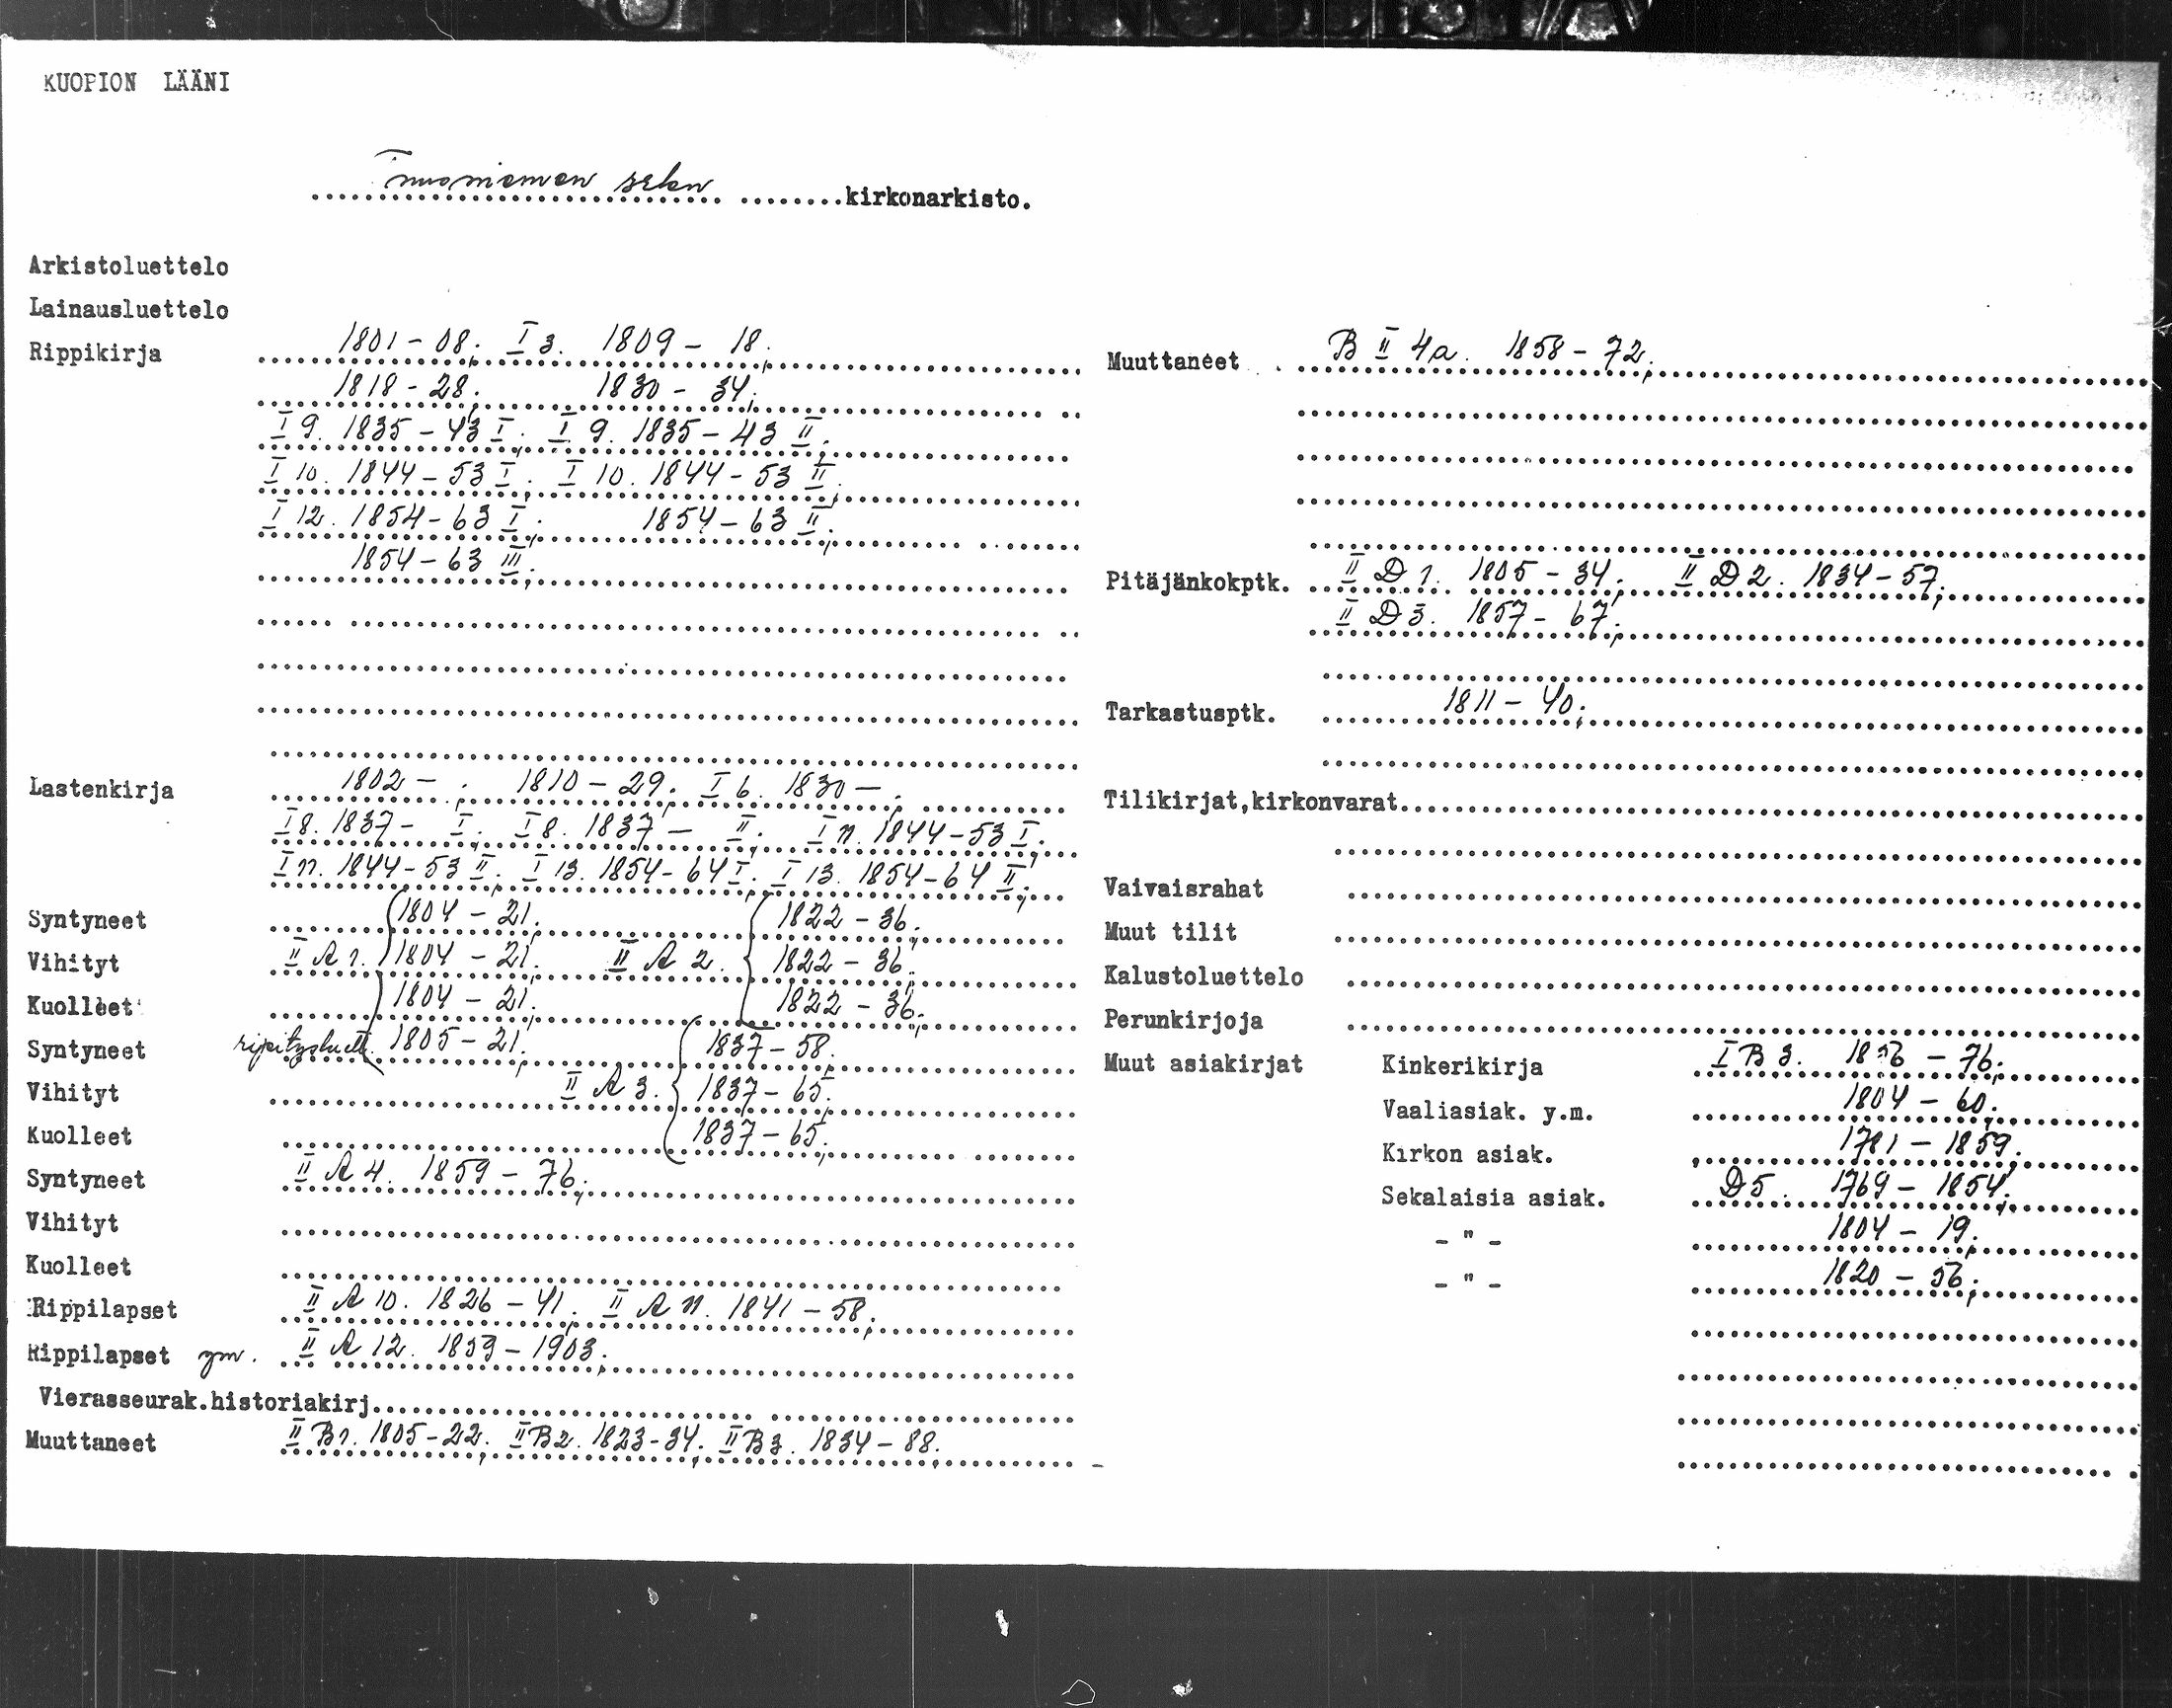 KUOPION LÄÄNI
Tuusniemen srkn kirkonarkisto.
Arkistoluettelo
Lainausluettelo
Rippikirja 1801-08; I 3. 1809-18;
1818-28; 1830-34;
I 9. 1835-43 I; I 9. 1835-43 II;
I 10. 1844-53 I; I 10. 1844-53 II;
I 12. 1854-63 I; 1854-63 II;
1854-63 III;
Lastenkirja 1802- ; 1810-29; I 6. 1830- ;
I 8. 1837- I; I 8. 1837- II; I 11. 1844-53 I;
I 11. 1844-53 II; I 13. 1854-64 I; I 13. 1854-64 II;
Syntyneet 1804-21; 1822-36;
Vihityt II A 1. 1804-21; II A 2. 1822-36;
Kuolleet 1804-21; 1822-36;
Syntyneet ripitysluett. 1805-21; 1837-58;
Vihityt II A 3. 1837-65;
Kuolleet 1837-65;
Syntyneet II A 4. 1859-76;
Vihityt
Kuolleet
Rippilapset II A 10. 1826-41; II A 11. 1841-58;
Rippilapset ym. II A 12. 1859-1903;
Vierasseurak.historiakirj.
Muuttaneet II B 1. 1805-22; II B 2. 1823-34; II B 3. 1834-88;
Muuttaneet B II 4a. 1858-72;
Pitäjänkokptk. II D 1. 1805-34; II D 2. 1834-57;
II D 3. 1857-67;
Tarkastusptk. 1811-40;
Tilikirjat,kirkonvarat
Vaivaisrahat
Muut tilit
Kalustoluettelo
Perunkirjoja
Muut asiakirjat Kinkerikirja I B 3. -76;
Vaaliasiak. y.m. 1804-60;
Kirkon asiak. 1781-1859;
Sekalaisia asiak. D 5. 1769-1854;
- " - 1804-19;
- " - 1820-56;